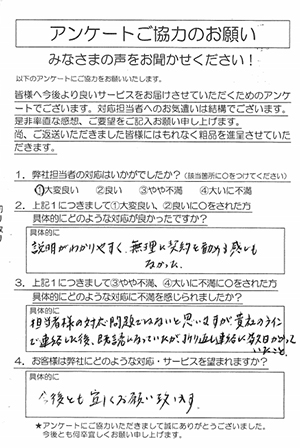 アンケートご協力のお願い
みなさまの声をお聞かせください！
以下のアンケートにご協力をお願いいたします。
皆様へ今後より良いサービスをお届けさせていただくためのアンケ
ートでございます。対応担当者へのお気遣いは結構でございます。
是非率直な感想、ご要望をご記入お願い申し上げます。
尚、ご返送いただきました皆様にはもれなく粗品を進呈させていた
だきます。
1．弊社担当者の対応はいかがでしたか？（該当箇所に○をつけてください）
①大変良い　②良い　③やや不満　④大いに不満
2．上記1につきまして①大変良い、②良いに○をされた方
具体的にどのような対応が良かったですか？
具体的に
説明がわかりやすく、無理に契約を勧める感じも
なかった。
3．上記1につきまして③やや不満、④大いに不満に○をされた方
具体的にどのような対応に不満を感じられましたか？
具体的に
担当者様の対応に問題ではないと思いますが、貴社のライン
で連絡した後、既読になっていたが、折り返し連絡に数日かかって
いたこと。
4．お客様は弊社にどのような対応・サービスを望まれますか？
具体的に
今後とも宜しくお願い致します。
★アンケートにご協力いただきまして誠にありがとうございました。
今後とも何卒宜しくお願い申し上げます。